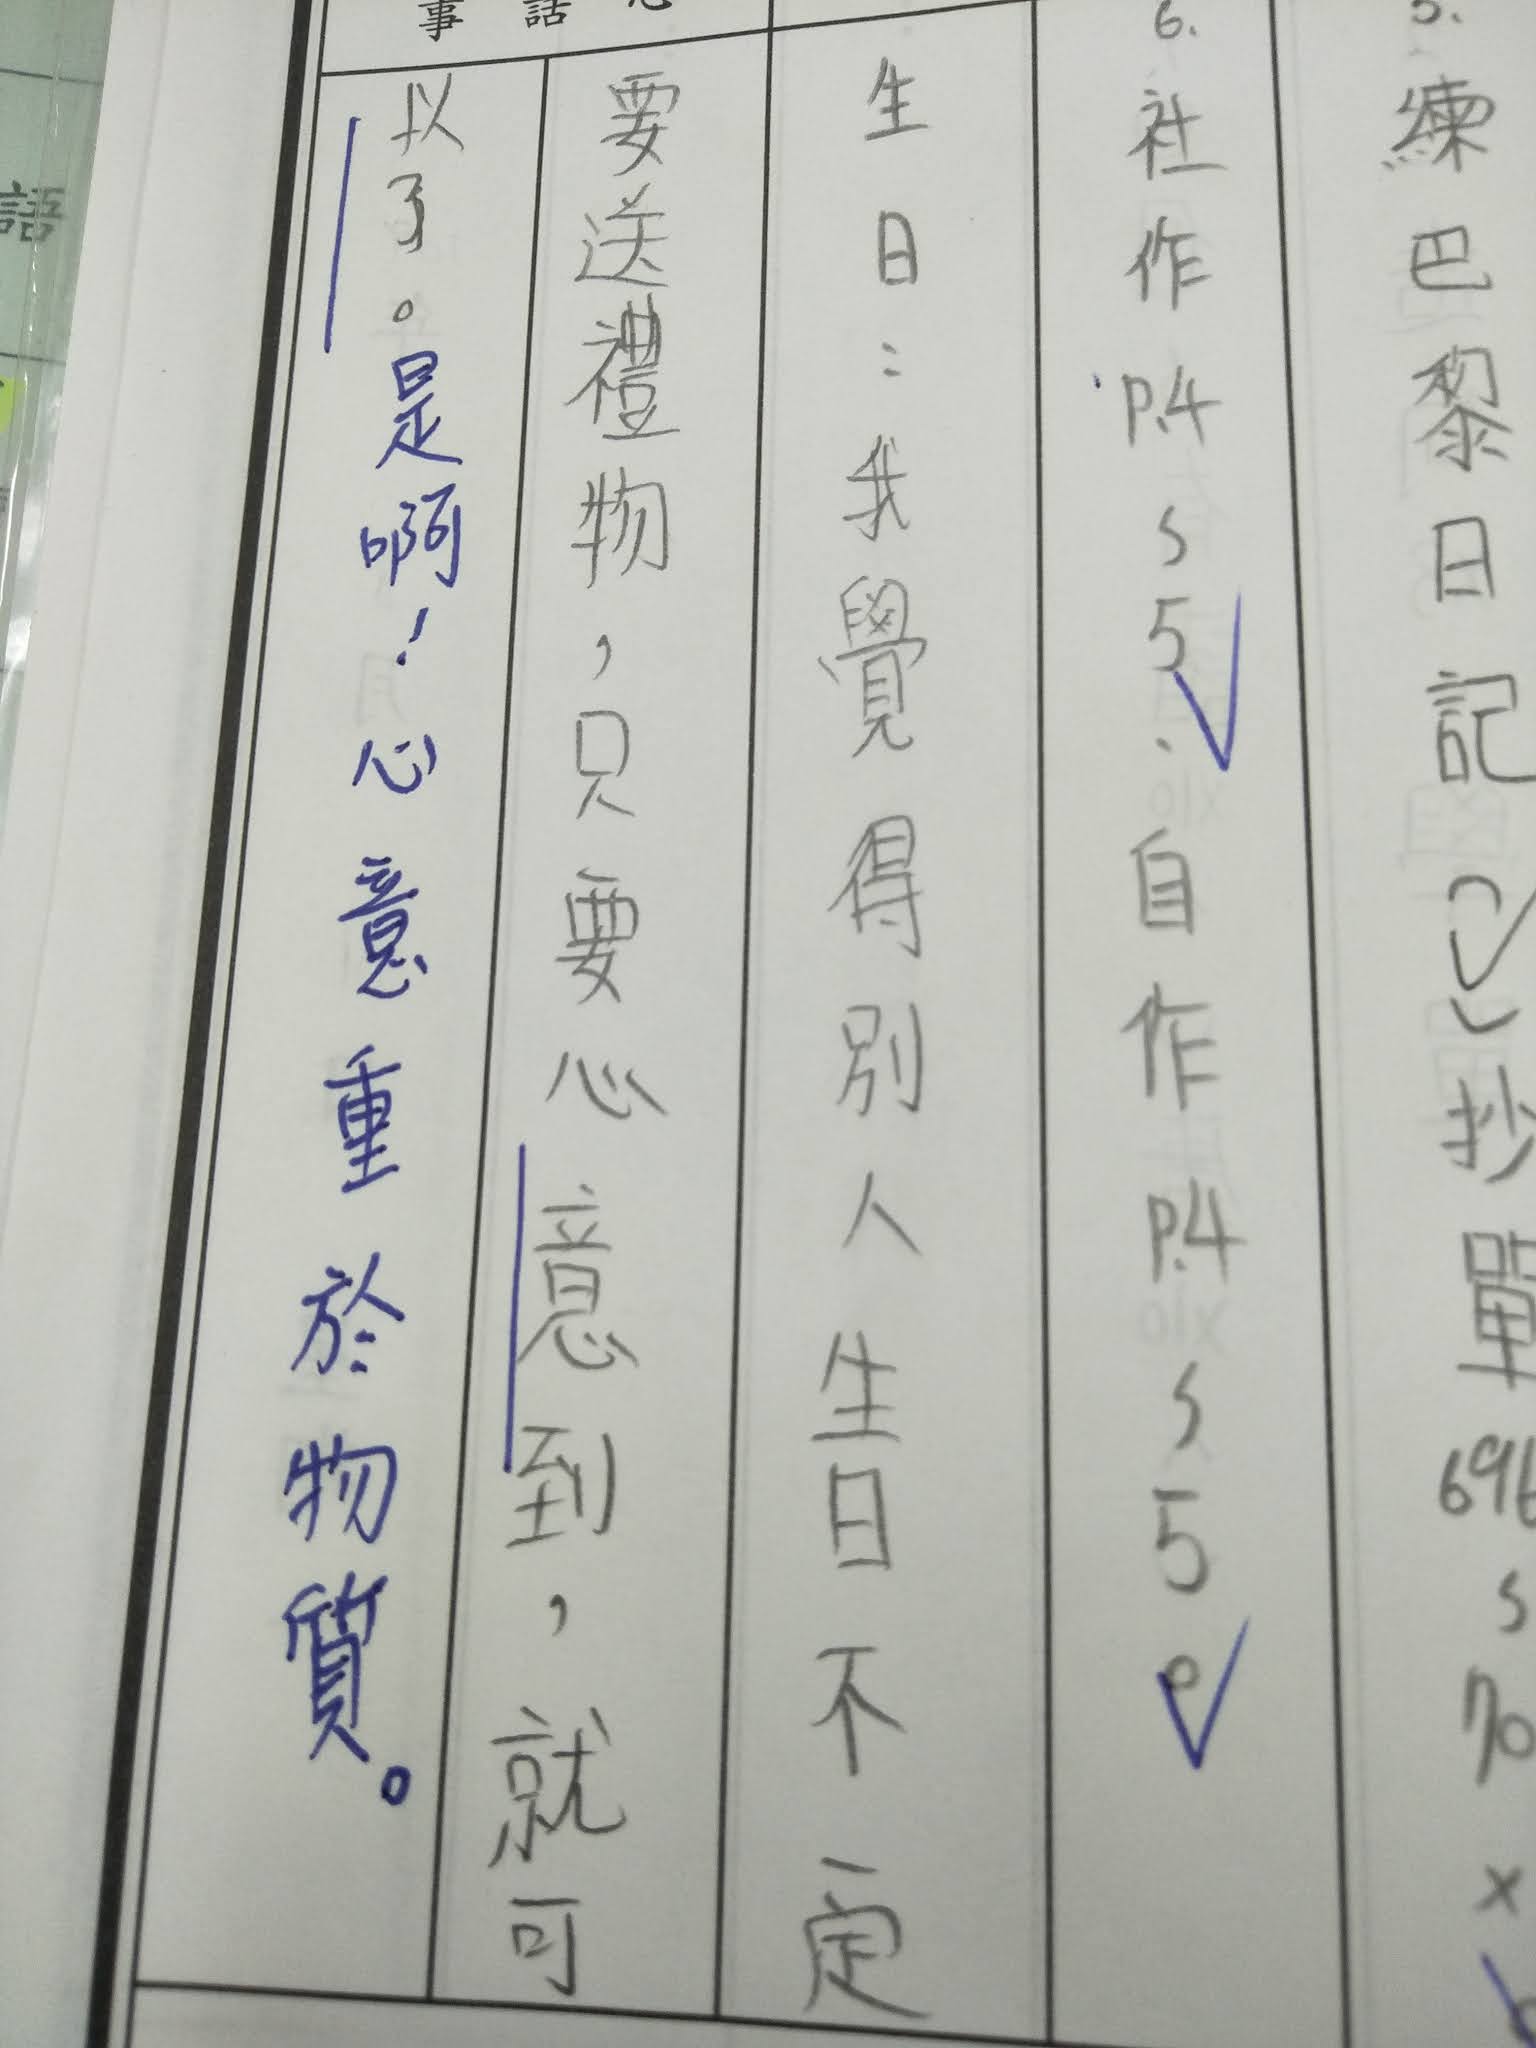 5.
練巴黎日記(〜)抄單696〜70×
6.
社作P.4〜5、自作P.4〜5。
生日：我覺得別人生日不一定
要送禮物，只要心意到，就可
以了。是啊！心意重於物質。
話
事
語